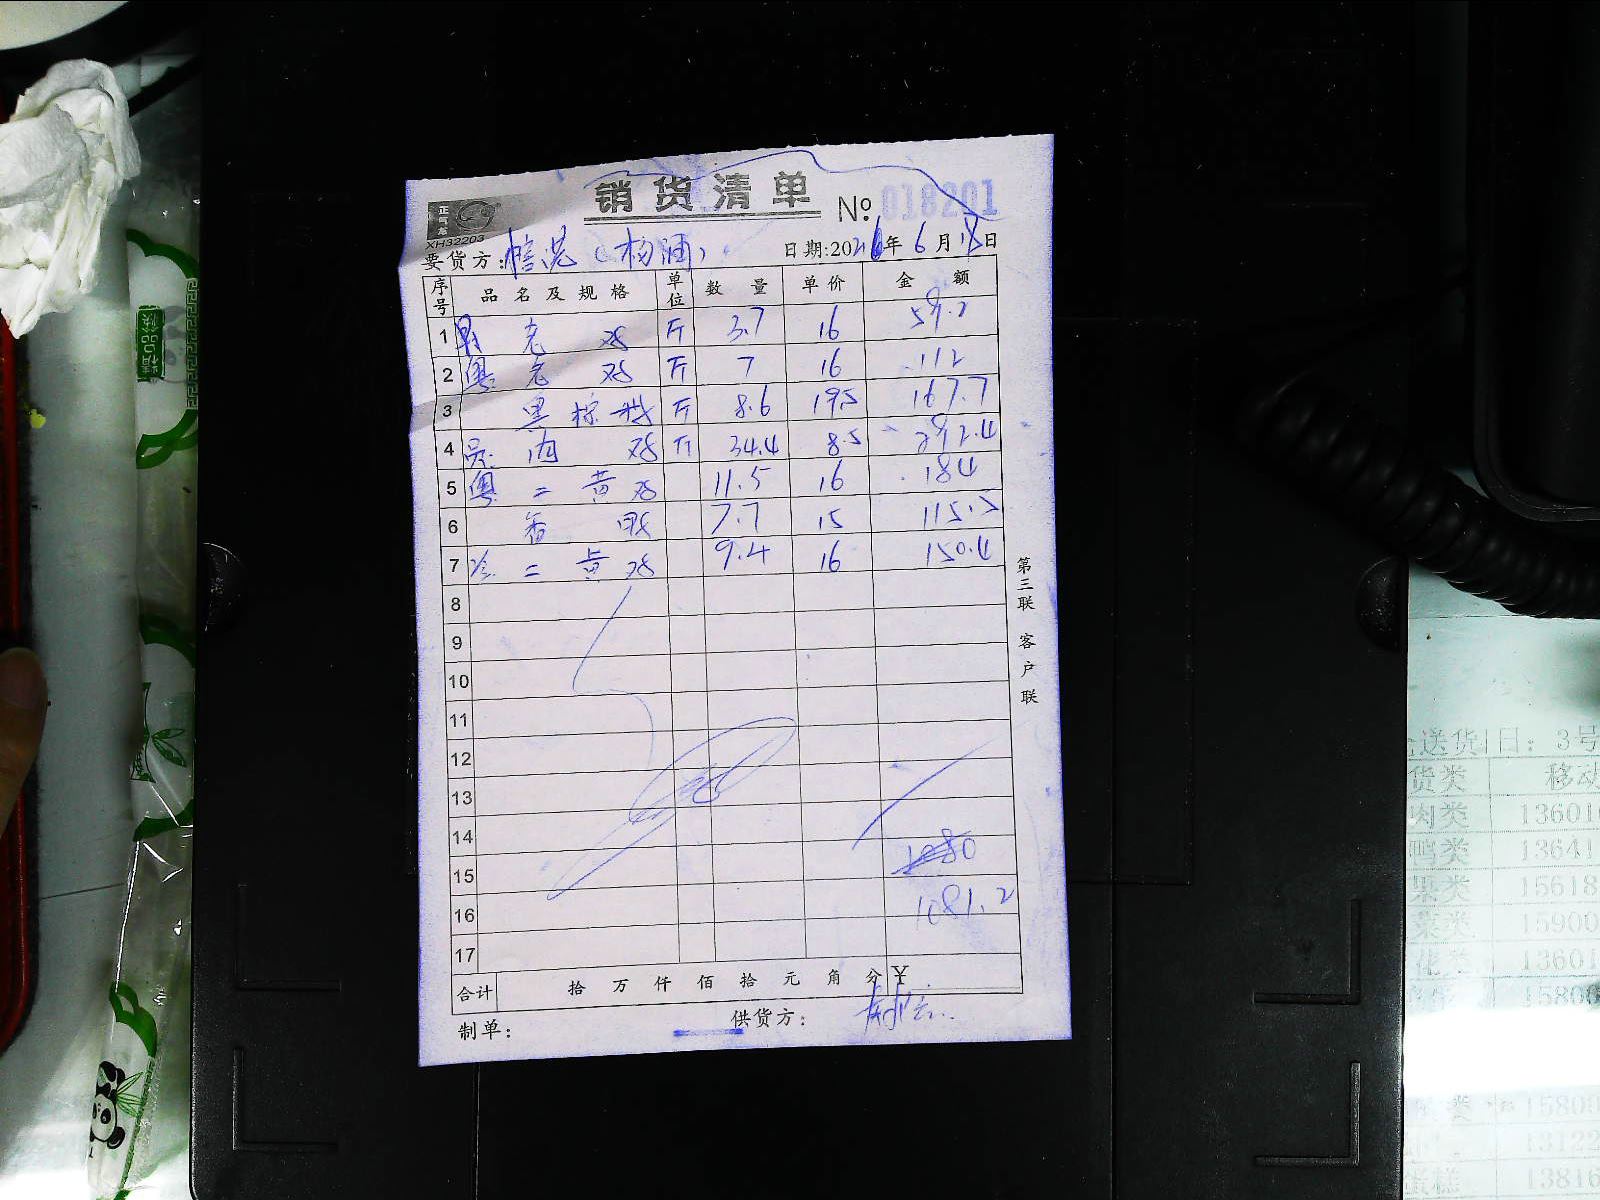 销货清单 № 018201
XH32203
要货方: 日期: 年 6 月 18 日
序号 品名及规格 单位 数量 单价 金额
1 老鸡 斤 3.7 16 59.2
2 粤老鸡 斤 7 16 112
3 黑棕鹅 斤 8.6 19.5 167.7
4 肉鸡 斤 34.4 8.5 292.4
5 粤二黄鸡 11.5 16 184
6 香鸭 7.7 15 115.5
7 冷二黄鸡 9.4 16 150.4
8
9
10
11
12
13
14
15 1080
16 1081.2
17
合计 拾万仟佰拾元角分 ¥
制单: 供货方:
第三联 客户联
送货日: 3号
货类 移动
肉类 13601
鸭类 13641
果类 15618
菜类 15900
13601
15800
类 15800
13122
蛋糕 13816